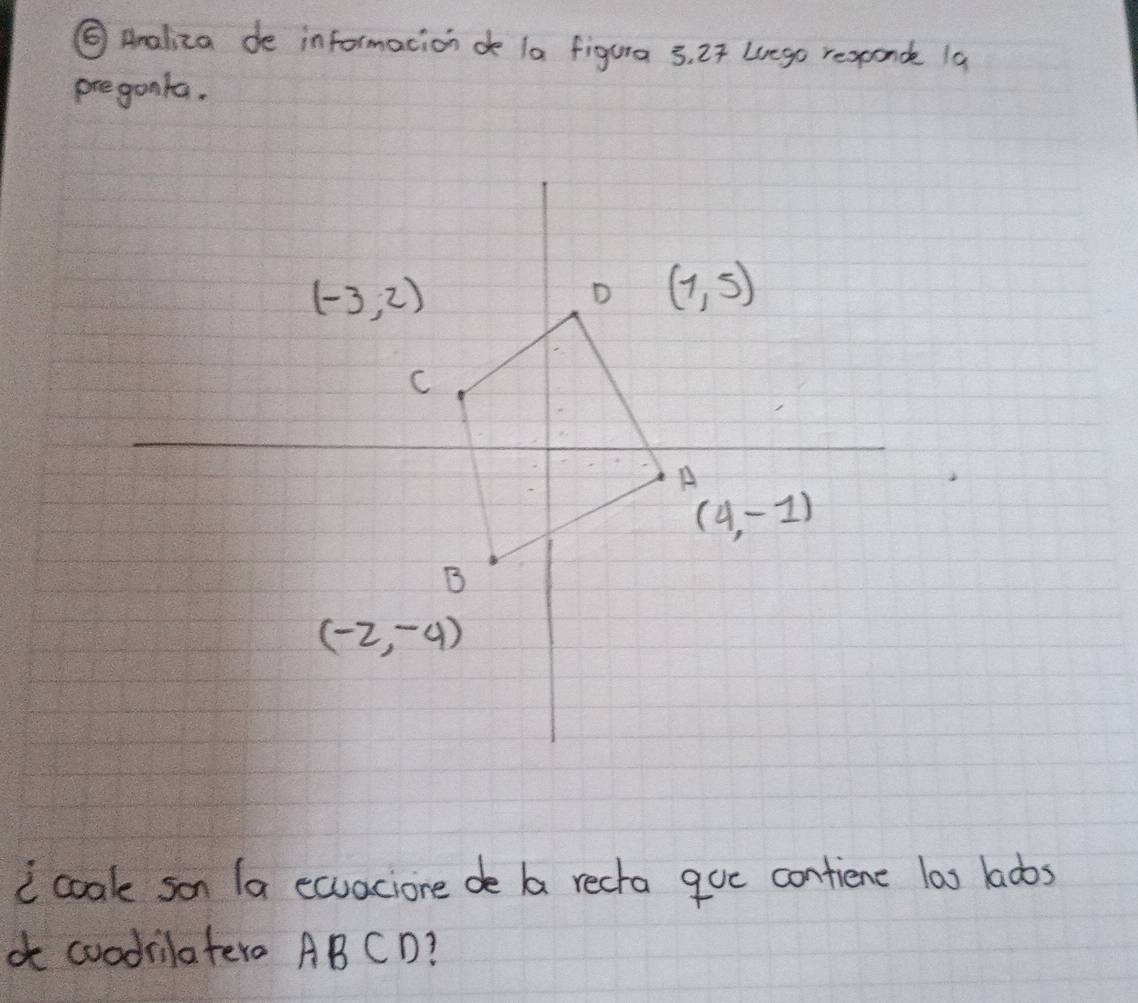 ⑥ Analiza de información de la figura 5.27 Luego responde la
pregonta.
(-3,2)
D (1,5)
C
A
(4,-1)
B
(-2,-4)
¿coale son la ecuaciore de la recta que contiene los lados
de cuodrilatero ABCD?